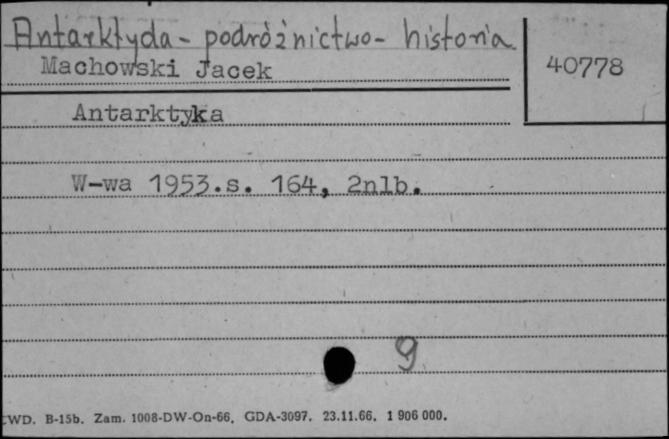 Antarktyda - podróżnictwo - historia
Machowski Jacek
40778
Antarktyka
W-wa 1953.s. 164, 2nlb.
9
CWD. B-15b. Zam. 1008-DW-On-66, GDA-3097. 23.11.66. 1 906 000.